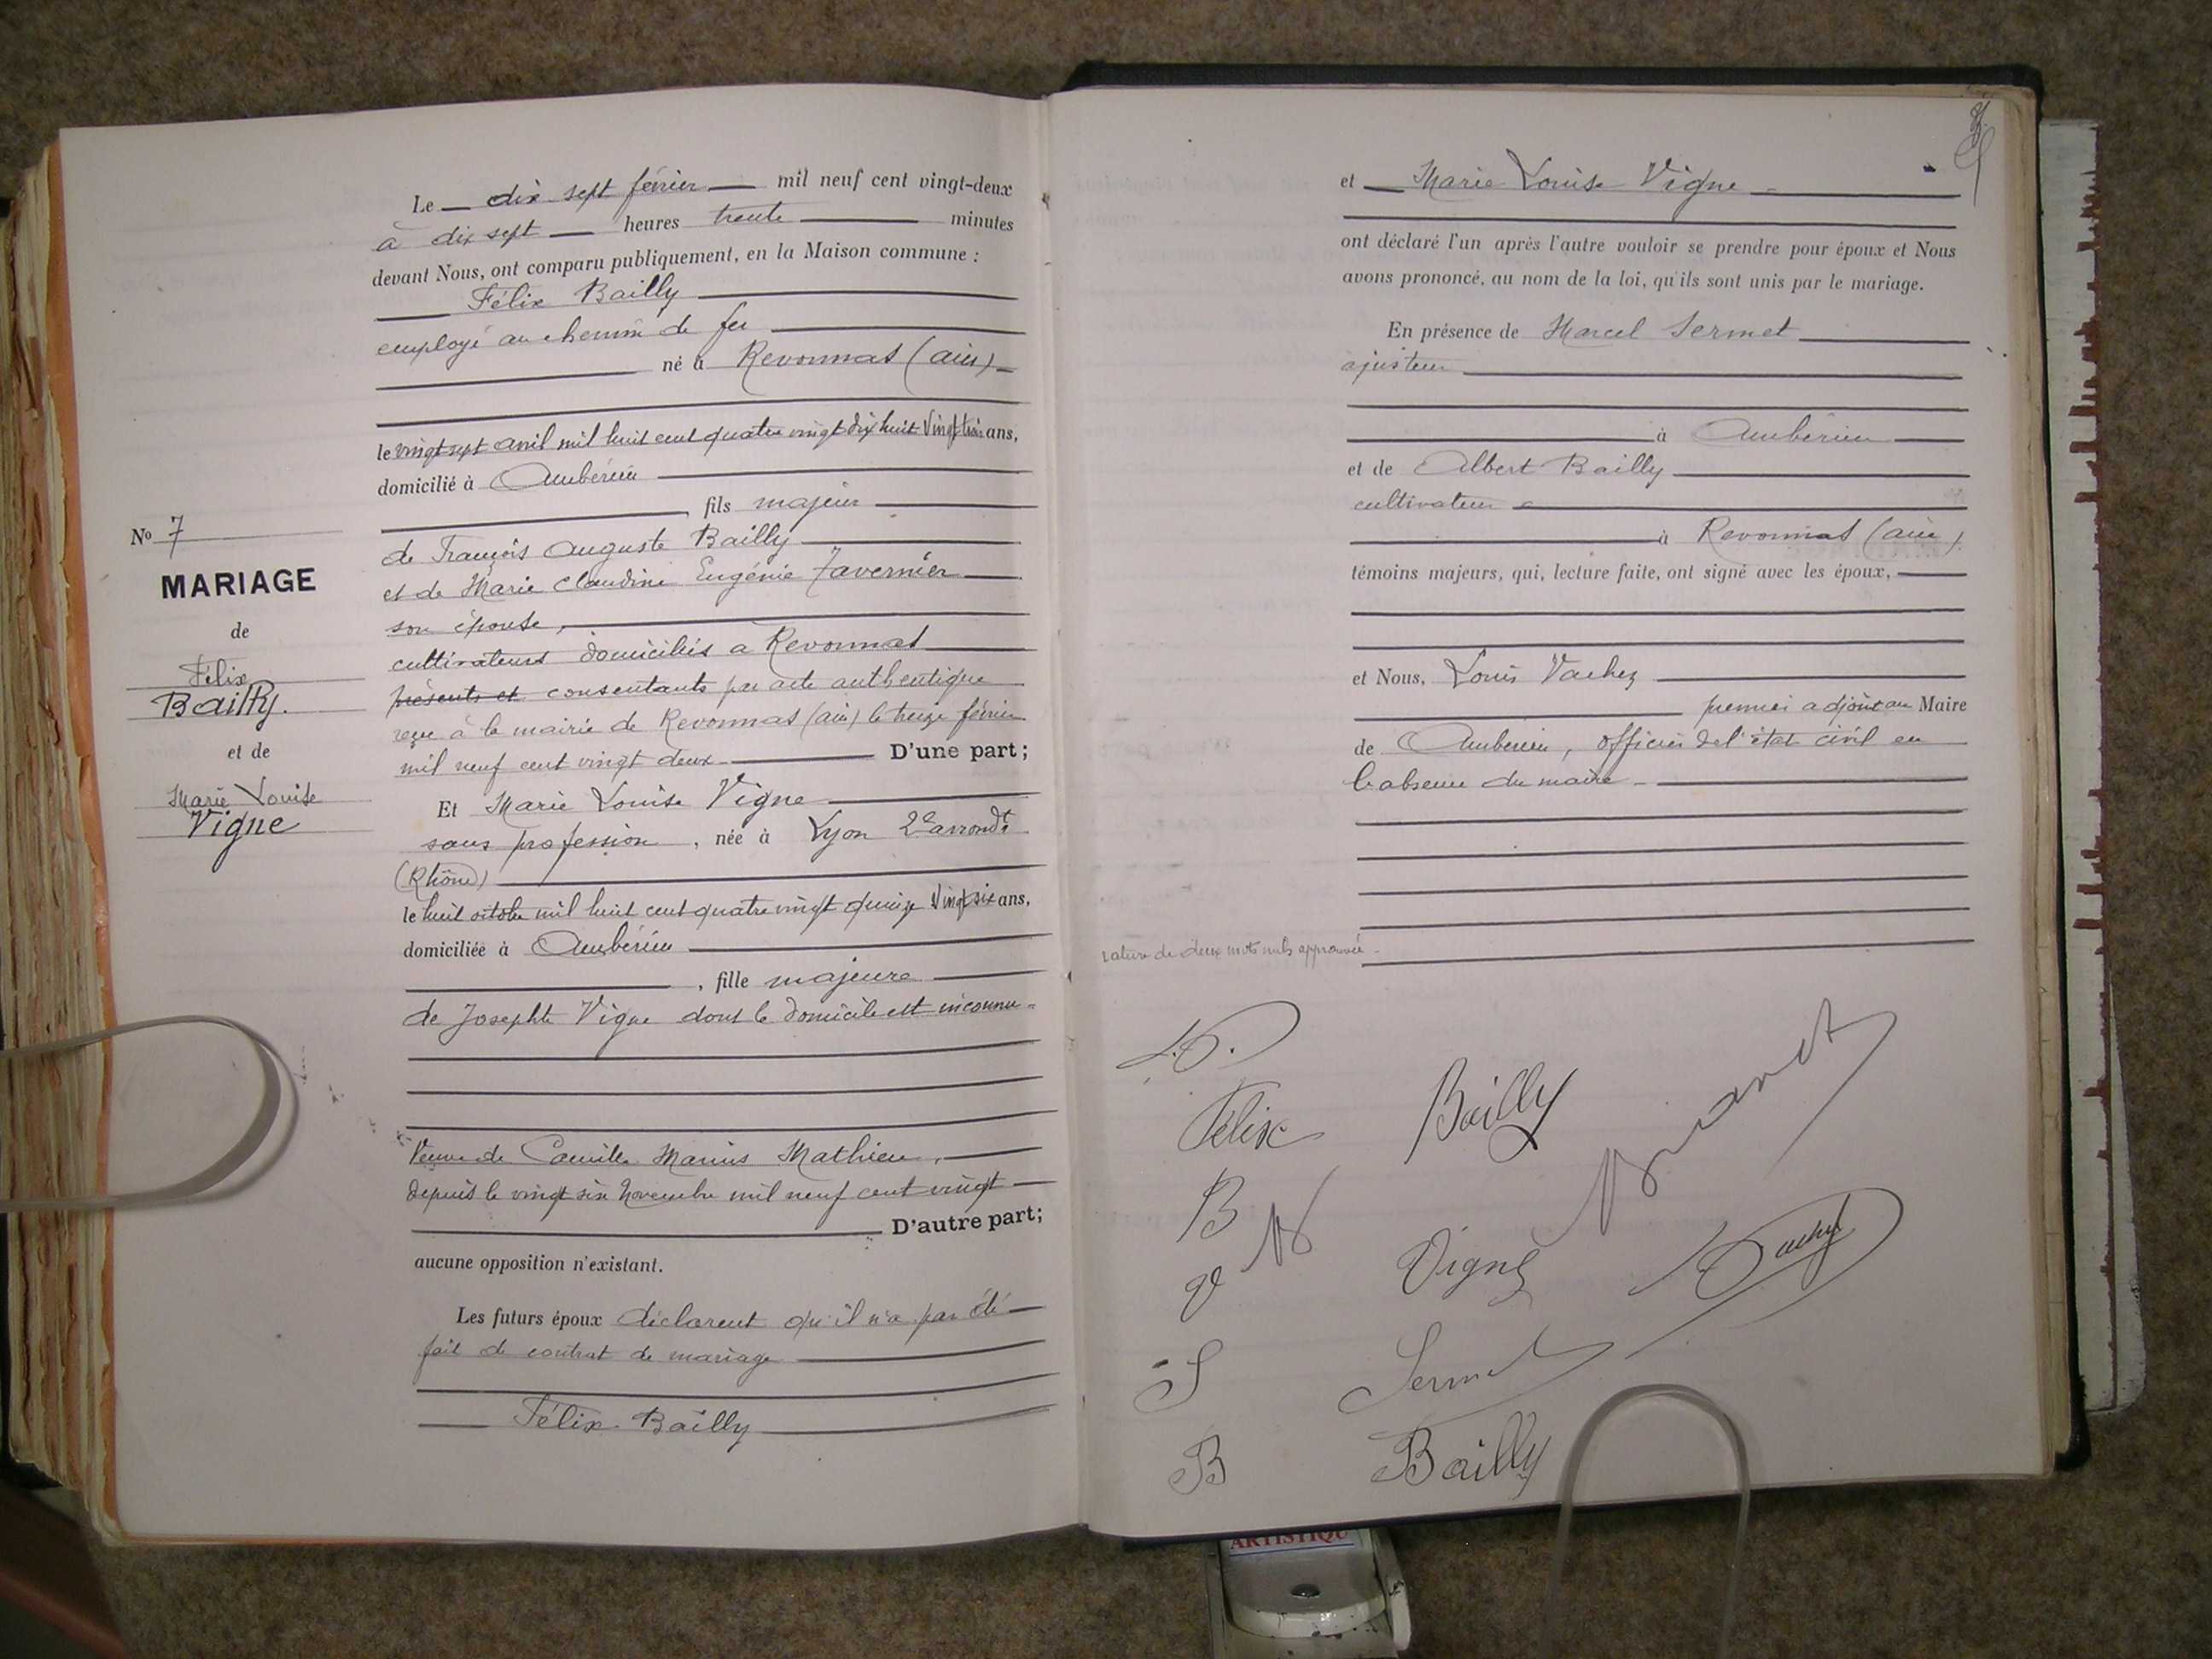 Le dix sept février mil neuf cent vingt-deux
à dix sept heures trente minutes
devant Nous, ont comparu publiquement, en la Maison commune :
Félix Bailly
employé au chemin de fer
né à Revonnas (ain)
le vingt sept avril mil huit cent quatre vingt dix huit Vingt trois ans,
domicilié à Ambérieu
, fils majeur
de François Auguste Bailly
et de Marie Claudine Eugénie Tavernier
son épouse,
cultivateurs domiciliés a Revonnas
présents et consentants par acte authentique
reçu à la mairie de Revonnas (ain) le treize février
mil neuf cent vingt deux D'une part;
Et Marie Louise Vigne
sans profession, née à Lyon 2e arrondt
(Rhône)
le huit octobre mil huit cent quatre vingt quinze Vingt six ans,
domiciliée à Ambérieu
, fille majeure
de Josephte Vigne dont le domicile est inconnu
Veuve de Camille Marius Mathieu,
depuis le vingt six novembre mil neuf cent vingt
D'autre part;
aucune opposition n'existant.
Les futurs époux déclarent qu'il n'a pas été
fait de contrat de mariage
Félix Bailly
No 7
MARIAGE
de
Félix
Bailly.
et de
Marie Louise
Vigne
et Marie Louise Vigne
ont déclaré l'un après l'autre vouloir se prendre pour époux et Nous
avons prononcé, au nom de la loi, qu'ils sont unis par le mariage.
En présence de Marcel Sermet
ajusteur
à Ambérieu
et de Albert Bailly
cultivateur
à Revonnas (ain)
témoins majeurs, qui, lecture faite, ont signé avec les époux,
et Nous, Louis Vachez
premier adjoint au Maire
de Ambérieu, officier de l'état civil en
l'absence du maire
rature de deux mots nuls approuvée
Félix Bailly
B
V Vigne
S Sermet
B Bailly
ARTISTIQU